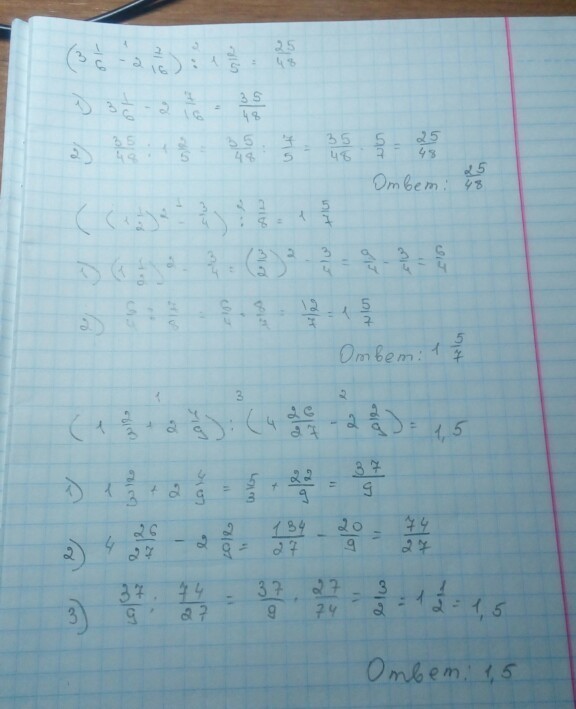 (3 1/6 - 2 7/16) : 1 2/5 = 25/48
1) 3 1/6 - 2 7/16 = 35/48
2) 35/48 : 1 2/5 = 35/48 : 7/5 = 35/48 · 5/7 = 25/48
Ответ: 25/48
((1 1/2)² - 3/4) : 7/8 = 1 5/7
1) (1 1/2)² - 3/4 = (3/2)² - 3/4 = 9/4 - 3/4 = 6/4
2) 6/4 : 7/8 = 6/4 · 8/7 = 12/7 = 1 5/7
Ответ: 1 5/7
(1 2/3 + 2 4/9) : (4 26/27 - 2 2/9) = 1,5
1) 1 2/3 + 2 4/9 = 5/3 + 22/9 = 37/9
2) 4 26/27 - 2 2/9 = 134/27 - 20/9 = 74/27
3) 37/9 : 74/27 = 37/9 · 27/74 = 3/2 = 1 1/2 = 1,5
Ответ: 1,5